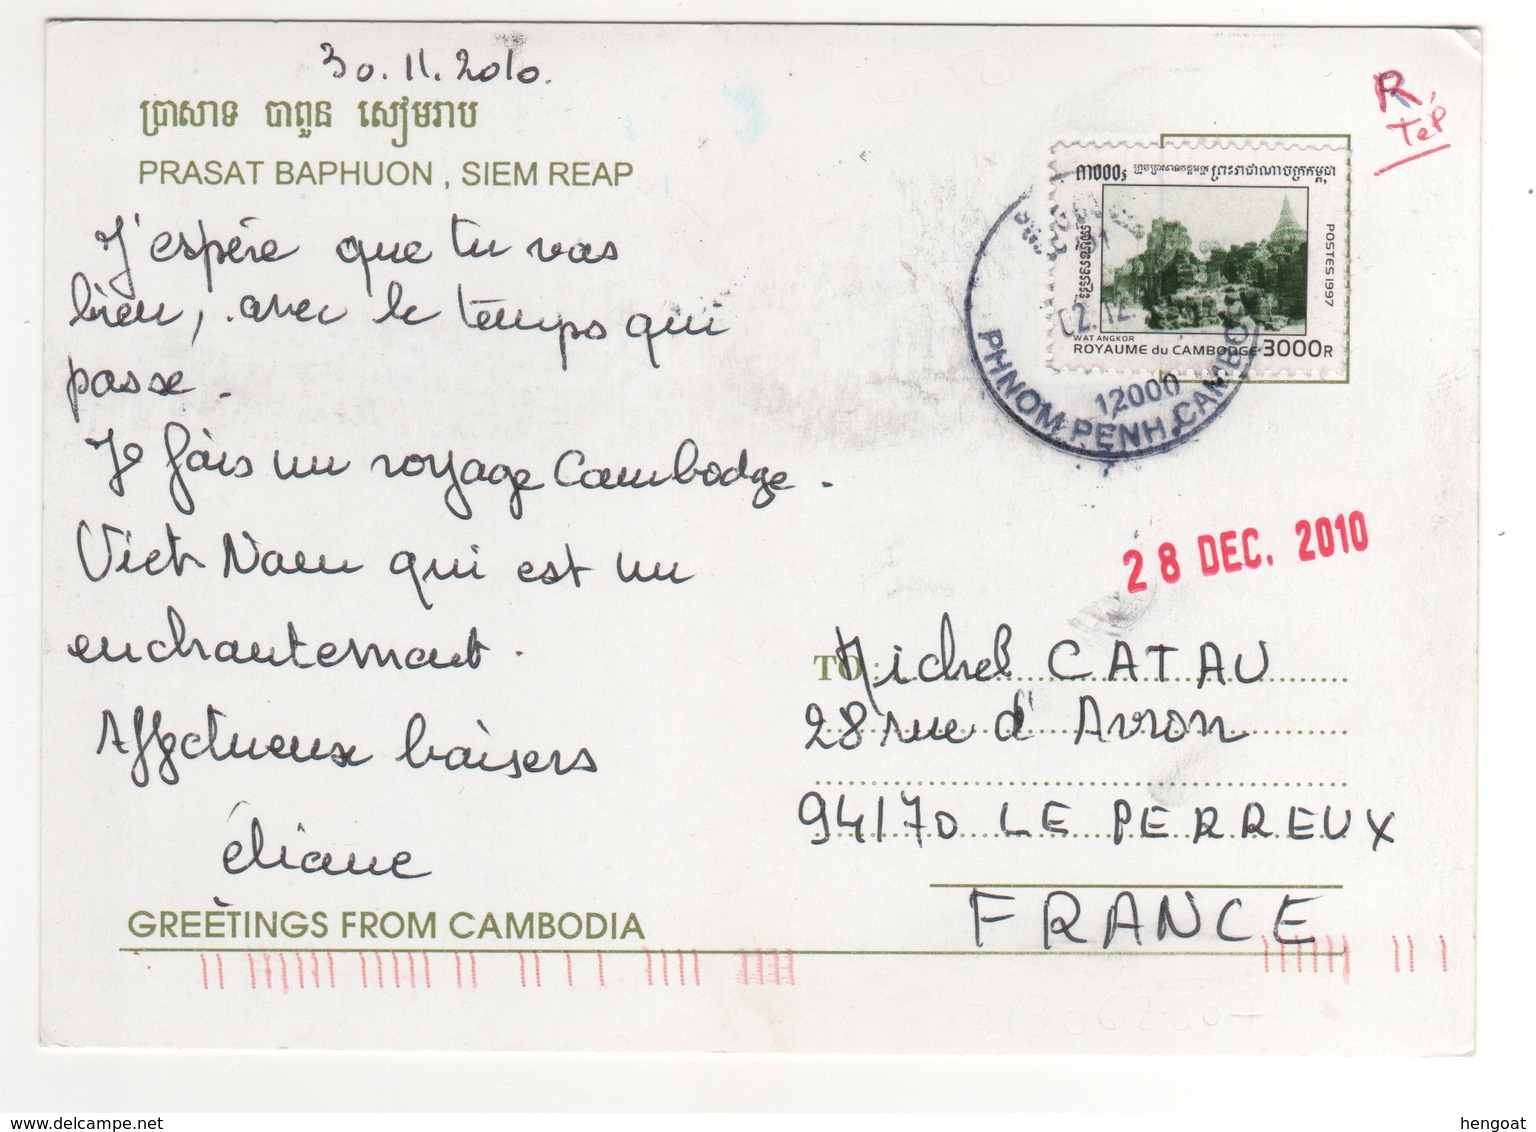 30.11.2010.
ប្រាសាទ បាពួន សៀមរាប
PRASAT BAPHUON , SIEM REAP
J'espère que tu vas
bien, avec le temps qui
passe.
Je fais un voyage Cambodge.
Viet Nam qui est un
enchantement.
Affectueux baisers
éliane
GREETINGS FROM CAMBODIA
R,
TeP
៣០០០៛
ព្រះរាជាណាចក្រកម្ពុជា
POSTES 1997
WAT ANGKOR
ROYAUME du CAMBODGE 3000R
02.12.
12000
PHNOM PENH, CAMBO
28 DEC. 2010
TO: Michel CATAU
28 rue d'Avron
94170 LE PERREUX
FRANCE
delcampe.net
hengoat